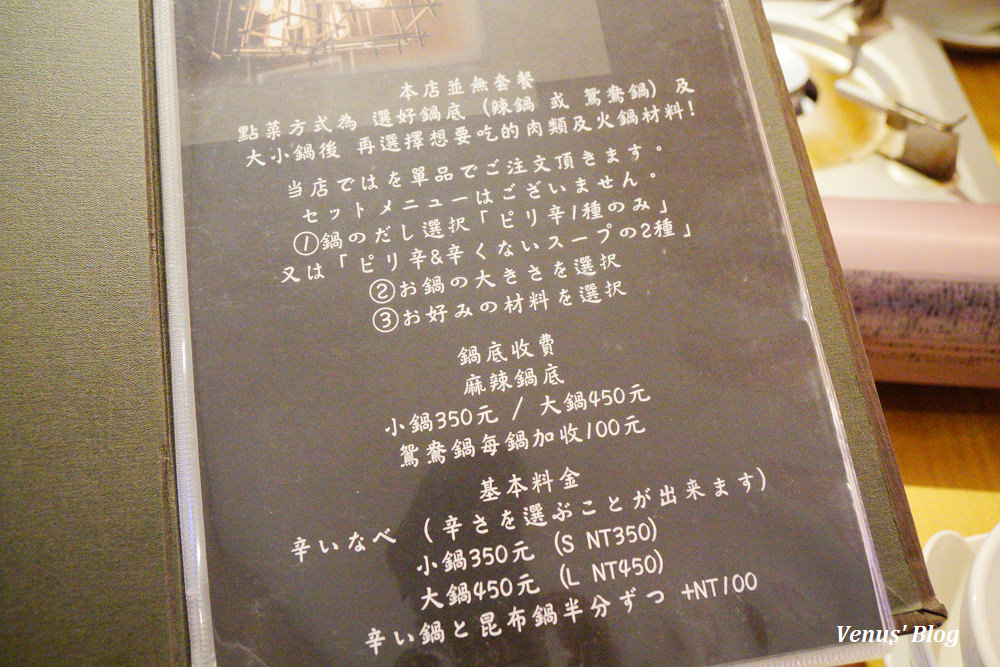 本店並無套餐
點菜方式為 選好鍋底 (辣鍋 或 鴛鴦鍋) 及
大小鍋後 再選擇想要吃的肉類及火鍋材料!
当店ではを單品でご注文頂きます。
セットメニューはございません。
①鍋のだし選択「ピリ辛1種のみ」
又は「ピリ辛&辛くないスープの2種」
②お鍋の大きさを選択
③お好みの材料を選択
鍋底收費
麻辣鍋底
小鍋350元 / 大鍋450元
鴛鴦鍋每鍋加收100元
基本料金
辛いなべ (辛さを選ぶことが出来ます)
小鍋350元 (S NT350)
大鍋450元 (L NT450)
辛い鍋と昆布鍋半分ずつ +NT100
Venus' Blog